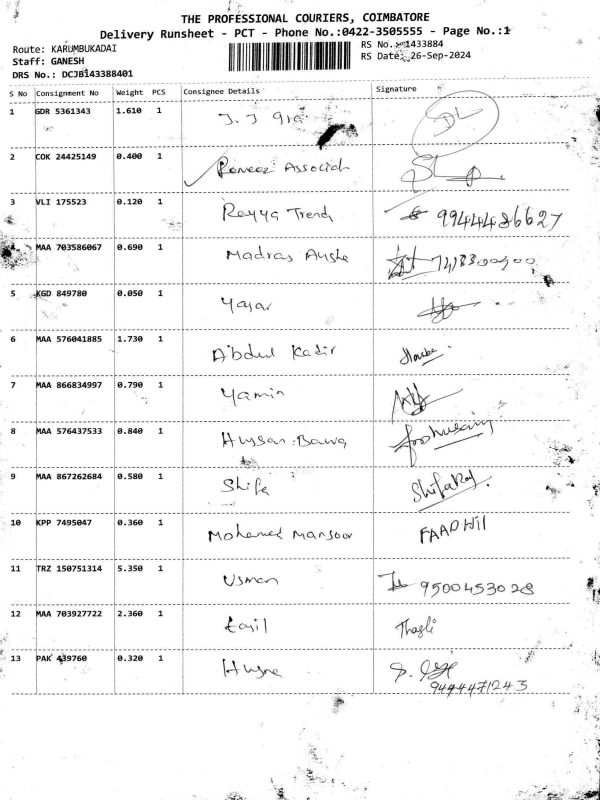 THE PROFESSIONAL COURIERS, COIMBATORE
Delivery Runsheet - PCT - Phone No.:0422-3505555 - Page No.:1
Route: KARUMBUKADAI RS No.:1433884
Staff: GANESH RS Date: 26-Sep-2024
DRS No.: DCJB143388401
S No Consignment No Weight PCS Consignee Details Signature
1 GDR 5361343 1.610 1 J.J
2 COK 24425149 0.400 1
3 VLI 175523 0.120 1 Rayya Trend 9944486627
4 MAA 703586067 0.690 1 Madras
5 KGD 849780 0.050 1 Yasar
6 MAA 576041885 1.730 1 Abdul Kadir
7 MAA 866834997 0.790 1 Yamin
8 MAA 576437533 0.840 1 Hussan Bawa
9 MAA 867262684 0.580 1 Shifa
10 KPP 7495047 0.360 1 Mohamed Mansoor FAADHIL
11 TRZ 150751314 5.350 1 Usman 9500453028
12 MAA 703927722 2.360 1
13 PAK 439760 0.320 1
9444471243